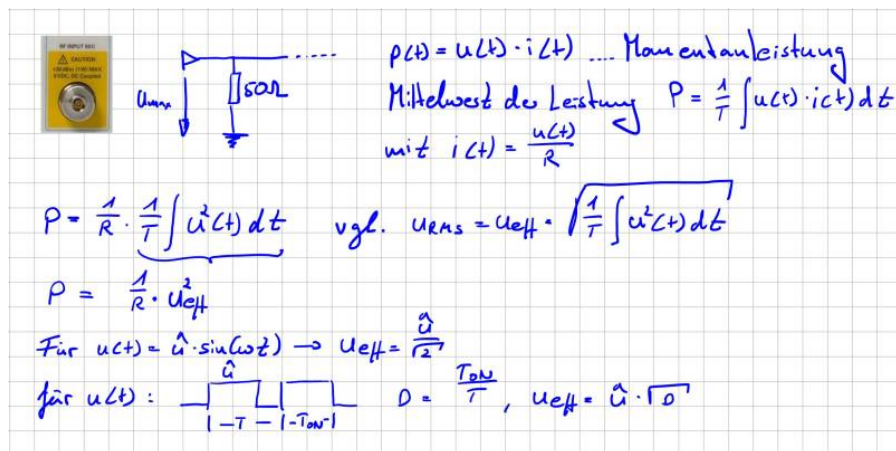 RF INPUT 50Ω
CAUTION
Umax
50Ω
p(t) = u(t) · i(t) .... Momentanleistung
Mittelwert der Leistung P = 1/T ∫ u(t) · i(t) dt
mit i(t) = u(t)/R
P = 1/R · 1/T ∫ u²(t) dt vgl. URMS = Ueff = √(1/T ∫ u²(t) dt)
P = 1/R · U²eff
Für u(t) = û · sin(ωt) → Ueff = û/√2
für u(t) : û |-T-|-TON-| D = TON/T , Ueff = û · √D